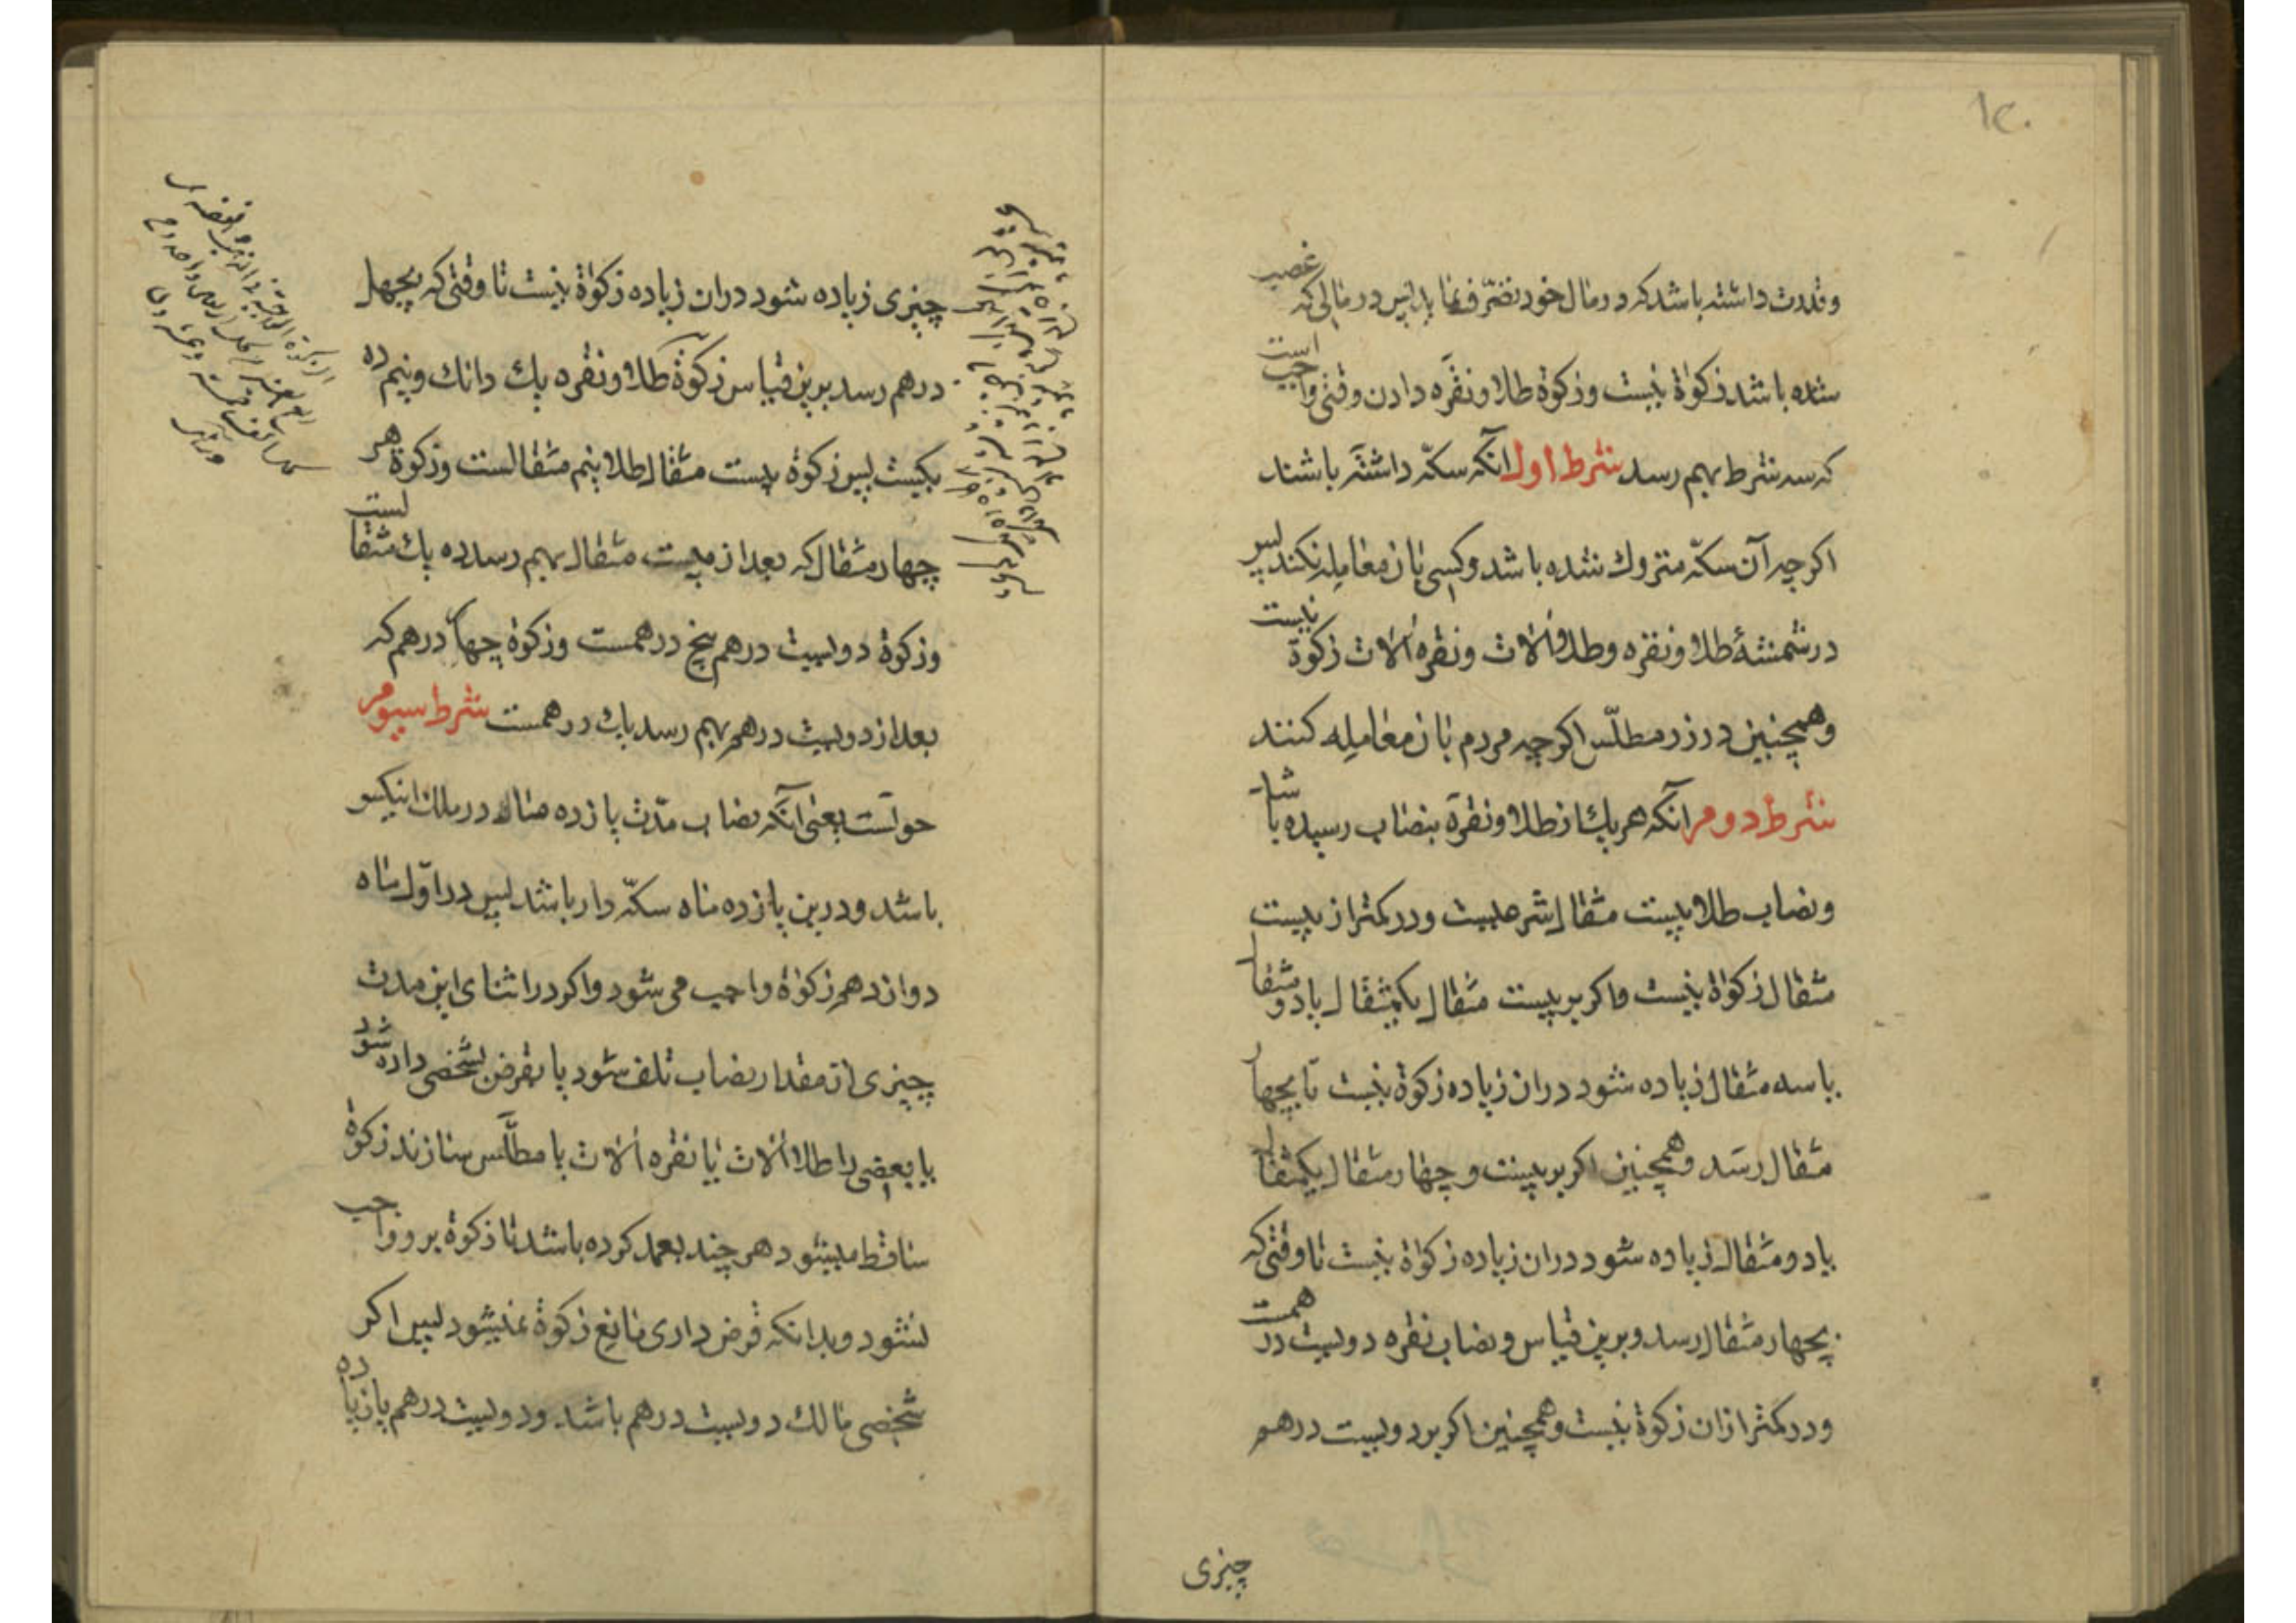 ۱۲۰
وقدرت داشته باشد که در مال خود تصرّف نماید پس در مالی که غصب
شده باشد زکوٰة نیست وزکوة طلا ونقره دادن وقتی واجب است
که سه شرط بهم رسد شرط اول آنکه سکّه داشته باشند
اکرچه آن سکّه متروك شده باشد وکسی بان معامله نکند پس
در شمشهٔ طلا ونقره وطلا آلات ونقره آلات زکوة نیست
وهمچنین در زر مطلّس اکرچه مردم بان معامله کنند
شرط دوم آنکه هر یك از طلا ونقره بنصاب رسیده باشد
ونصاب طلا بیست مثقال شرعیست ودر کمتر از بیست
مثقال زکوٰة نیست واکر بر بیست مثقال یکمثقال یا دو مثقال
یا سه مثقال زیاده شود دران زیاده زکوة نیست تا بچهار
مثقال رسد وهمچنین اکر بر بیست و چهار مثقال یکمثقال
یا دو مثقال زیاده شود دران زیاده زکوٰة نیست تا وقتی که
بچهار مثقال رسد وبرین قیاس ونصاب نقره دویست درهمست
ودر کمتر ازان زکوة نیست وهمچنین اکر بر دویست درهم
چیزی
چیزی زیاده شود دران زیاده زکوٰة نیست تا وقتی که بچهل
درهم رسد برین قیاس زکوٰة طلا ونقره یك دانك ونیم ده
یکیست پس زکوة بیست مثقال طلا نیم مثقالست وزکوة هر
چهار مثقال که بعد از بیست مثقال بهم رسد ده یك مثقالست
وزکوة دویست درهم پنج درهمست وزکوة چهل درهم که
بعد از دویست درهم بهم رسد یك درهمست شرط سیوم
حولست یعنی آنکه نصاب مدّت یازده ماه در ملك اینکس
باشد ودرین یازده ماه سکّه دار باشد پس در اوّل ماه
دوازدهم زکوٰة واجب می شود واکر در اثنای این مدت
چیزی از مقدار نصاب تلف شود یا بقرض بشخصی داده شود
یا بعضی را طلا آلات یا نقره آلات یا مطلّس سازند زکوة
ساقط میشود هر چند بعمد کرده باشد تا زکوة بر وواجب
نشود وبدانکه قرض داری مانع زکوة نمیشود پس اکر
شخصی مالك دویست درهم باشد ودویست درهم یا زیاده